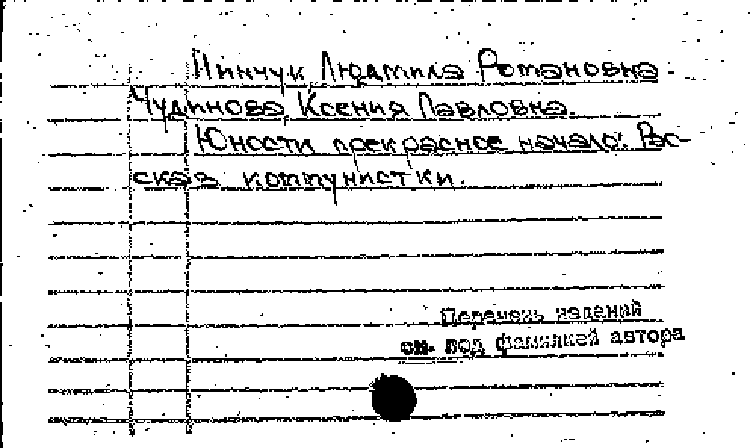 Пинчук Людмила Романовна
Чудинова Ксения Павловна.
Юности прекрасное начало: Рас-
сказ коммунистки.
Перечень изданий
см. под фамилией автора